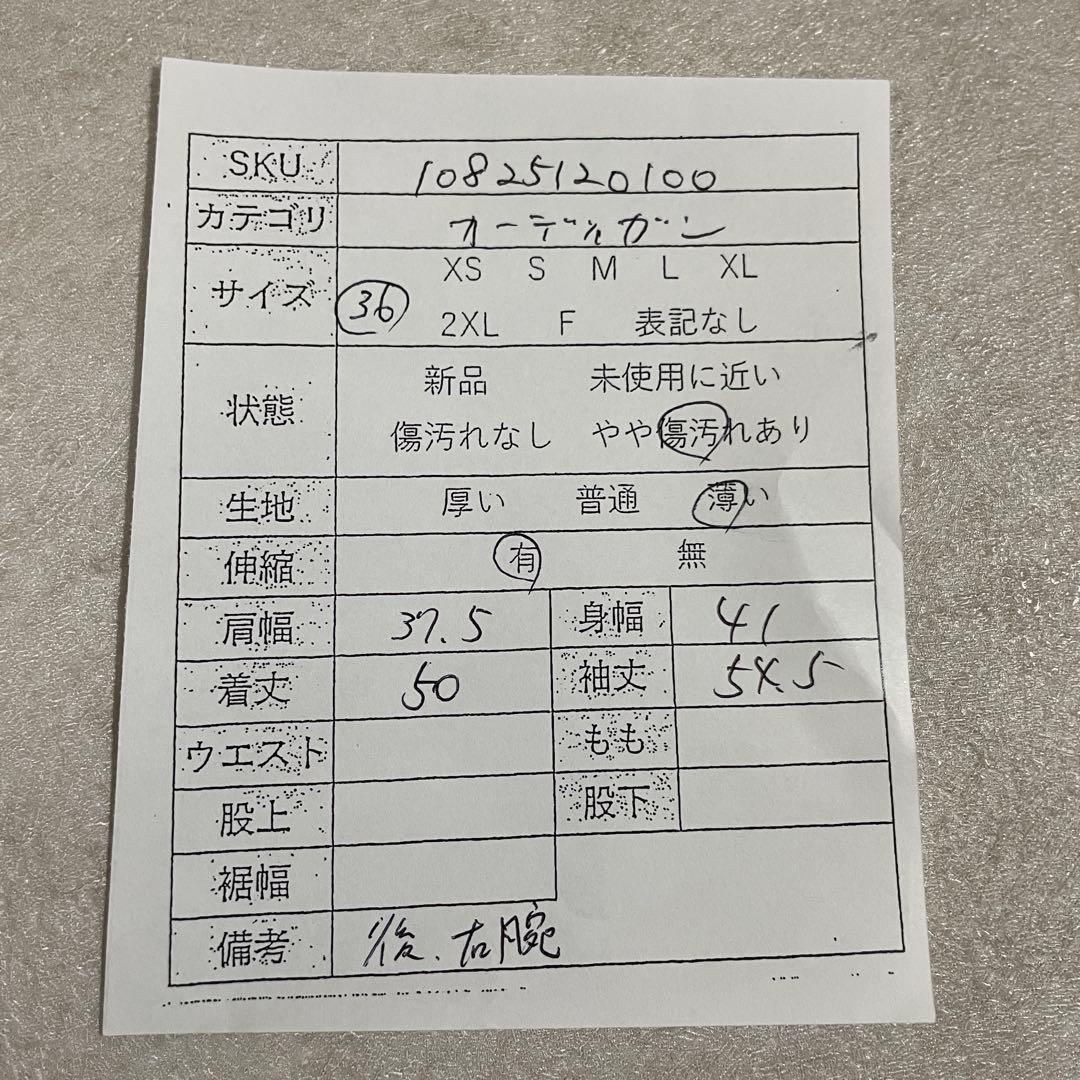 SKU 10825120100
カテゴリ カーディガン
サイズ 36 XS S M L XL
2XL F 表記なし
状態 新品 未使用に近い
傷汚れなし やや傷汚れあり
生地 厚い 普通 薄い
伸縮 有 無
肩幅 37.5 身幅 41
着丈 50 袖丈 54.5
ウエスト もも
股上 股下
裾幅
備考 後、右腕